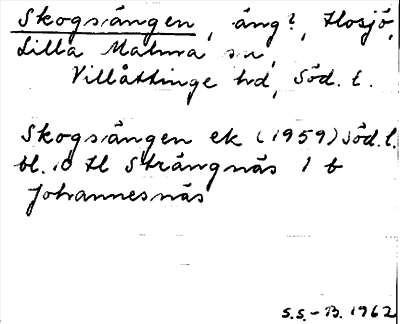 Skogsängen, äng?, Hosjö,
Lilla Malma sn,
Villåttinge hd, Söd. l.
Skogsängen ek (1959) Söd. l.
bl. 10 H Strängnäs 1 b
Johannesnäs
S.S. - B. 1962